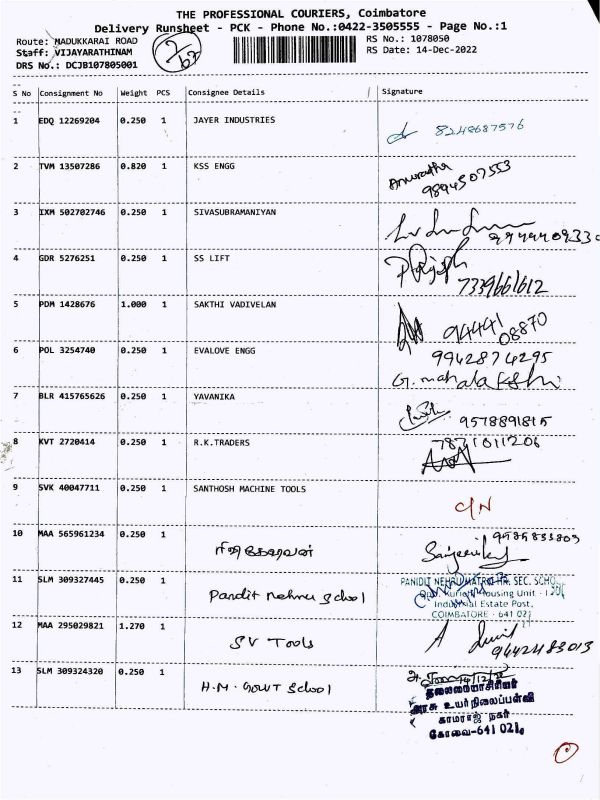 THE PROFESSIONAL COURIERS, Coimbatore
Delivery Runsheet - PCK - Phone No.:0422-3505555 - Page No.:1
Route: MADUKKARAI ROAD RS No.: 1078050
Staff: VIJAYARATHINAM RS Date: 14-Dec-2022
DRS No.: DCJB107805001
S No Consignment No Weight PCS Consignee Details Signature
1 EDQ 12269204 0.250 1 JAYER INDUSTRIES 8248687576
2 TVM 13507286 0.820 1 KSS ENGG Anuratha
9894507553
3 IXM 502702746 0.250 1 SIVASUBRAMANIYAN
4 GDR 5276251 0.250 1 SS LIFT
7339661612
5 PDM 1428676 1.000 1 SAKTHI VADIVELAN 94441
08870
6 POL 3254740 0.250 1 EVALOVE ENGG 9942874295
G. mahalakshmi
7 BLR 415765626 0.250 1 YAVANIKA 9578891815
8 KVT 2720414 0.250 1 R.K.TRADERS
9 SVK 40047711 0.250 1 SANTHOSH MACHINE TOOLS C/N
10 MAA 565961234 0.250 1
11 SLM 309327445 0.250 1 Pandit Nehru School PANDIT NEHRU MATRIC HR. SEC. SCHOOL
Housing Unit - 1
Industrial Estate Post,
COIMBATORE - 641 021
12 MAA 295029821 1.270 1 SV Tools 9442483013
13 SLM 309324320 0.250 1 H.M. GOVT School 14/12/22
தலைமையாசிரியர்
அரசு உயர்நிலைப்பள்ளி
காமராஜ் நகர்
கோவை-641 021.